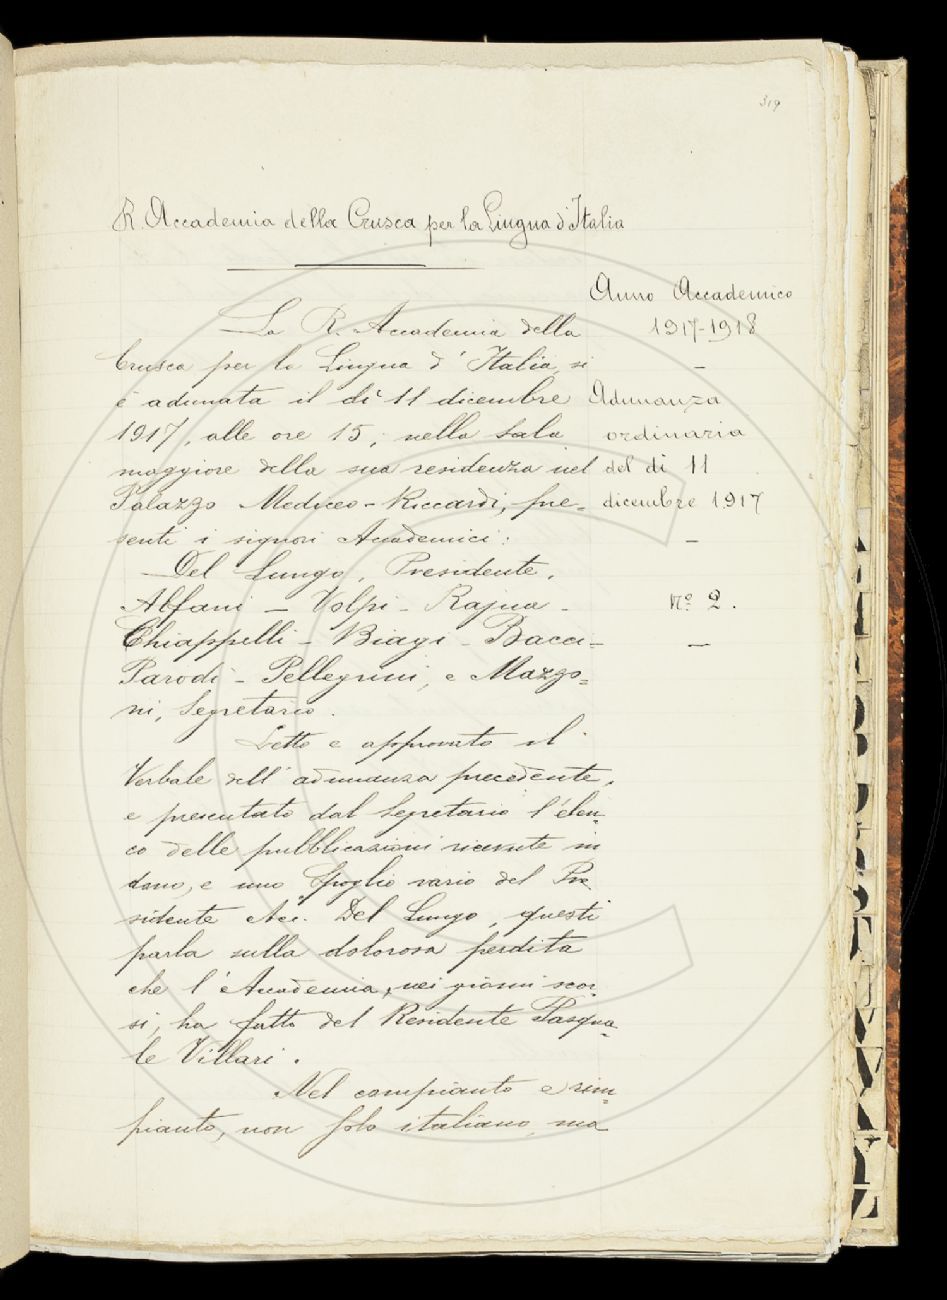 319
R. Accademia della Crusca per la Lingua d'Italia
Anno Accademico
1917-1918
–
Adunanza
ordinaria
del dì 11
dicembre 1917
–
N.º 2.
–
La R. Accademia della
Crusca per la Lingua d'Italia, si
è adunata il dì 11 dicembre
1917, alle ore 15, nella sala
maggiore della sua residenza nel
Palazzo Mediceo-Riccardi, pre=
senti i signori Accademici:
Del Lungo, Presidente,
Alfani – Volpi – Rajna –
Chiappelli – Biagi – Bacci –
Parodi – Pellegrini, e Mazzo=
ni, Segretario.
Letto e approvato il
Verbale dell'adunanza precedente,
e presentato dal Segretario l'elen=
co delle pubblicazioni ricevute in
dono, e uno Spoglio vario del Pre
sidente Acc. Del Lungo, questi
parla sulla dolorosa perdita
che l'Accademia, nei giorni scor=
si, ha fatto del Residente Pasqua=
le Villari.
Nel compianto e rim=
pianto, non solo italiano, ma